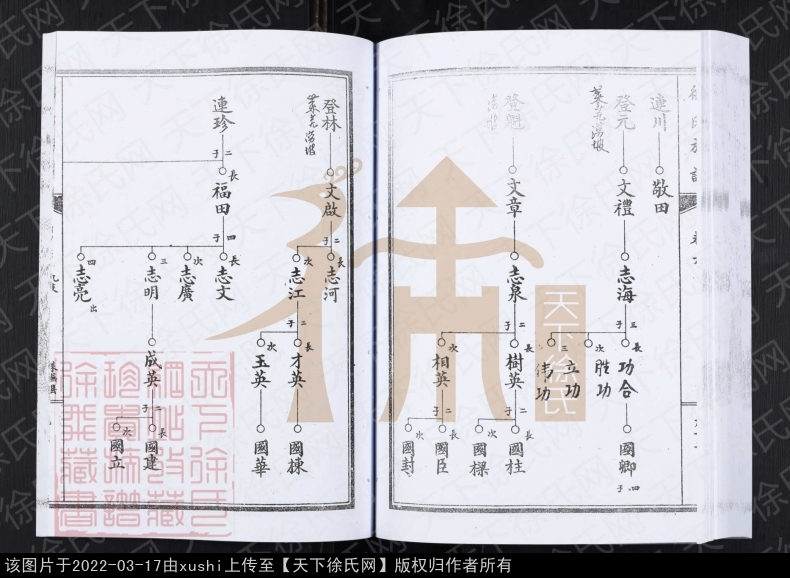 連川
敬田
登元
文禮
志海
三子
長
功合
次
勝功
三
立功
伟功
國卿
四子
登魁
文章
志泉
二子
長
樹英
二子
長
國柱
次
國樑
次
相英
二子
長
國臣
次
國封
登林
文啟
二子
長
志河
次
志江
二子
長
才英
國棟
次
玉英
國華
連珍
二子
長
福田
四子
長
志文
次
志廣
三
志明
成英
二子
長
國建
次
國立
四
志亮
出
天下徐氏
天下徐氏网
该图片于2022-03-17由xushi上传至【天下徐氏网】版权归作者所有